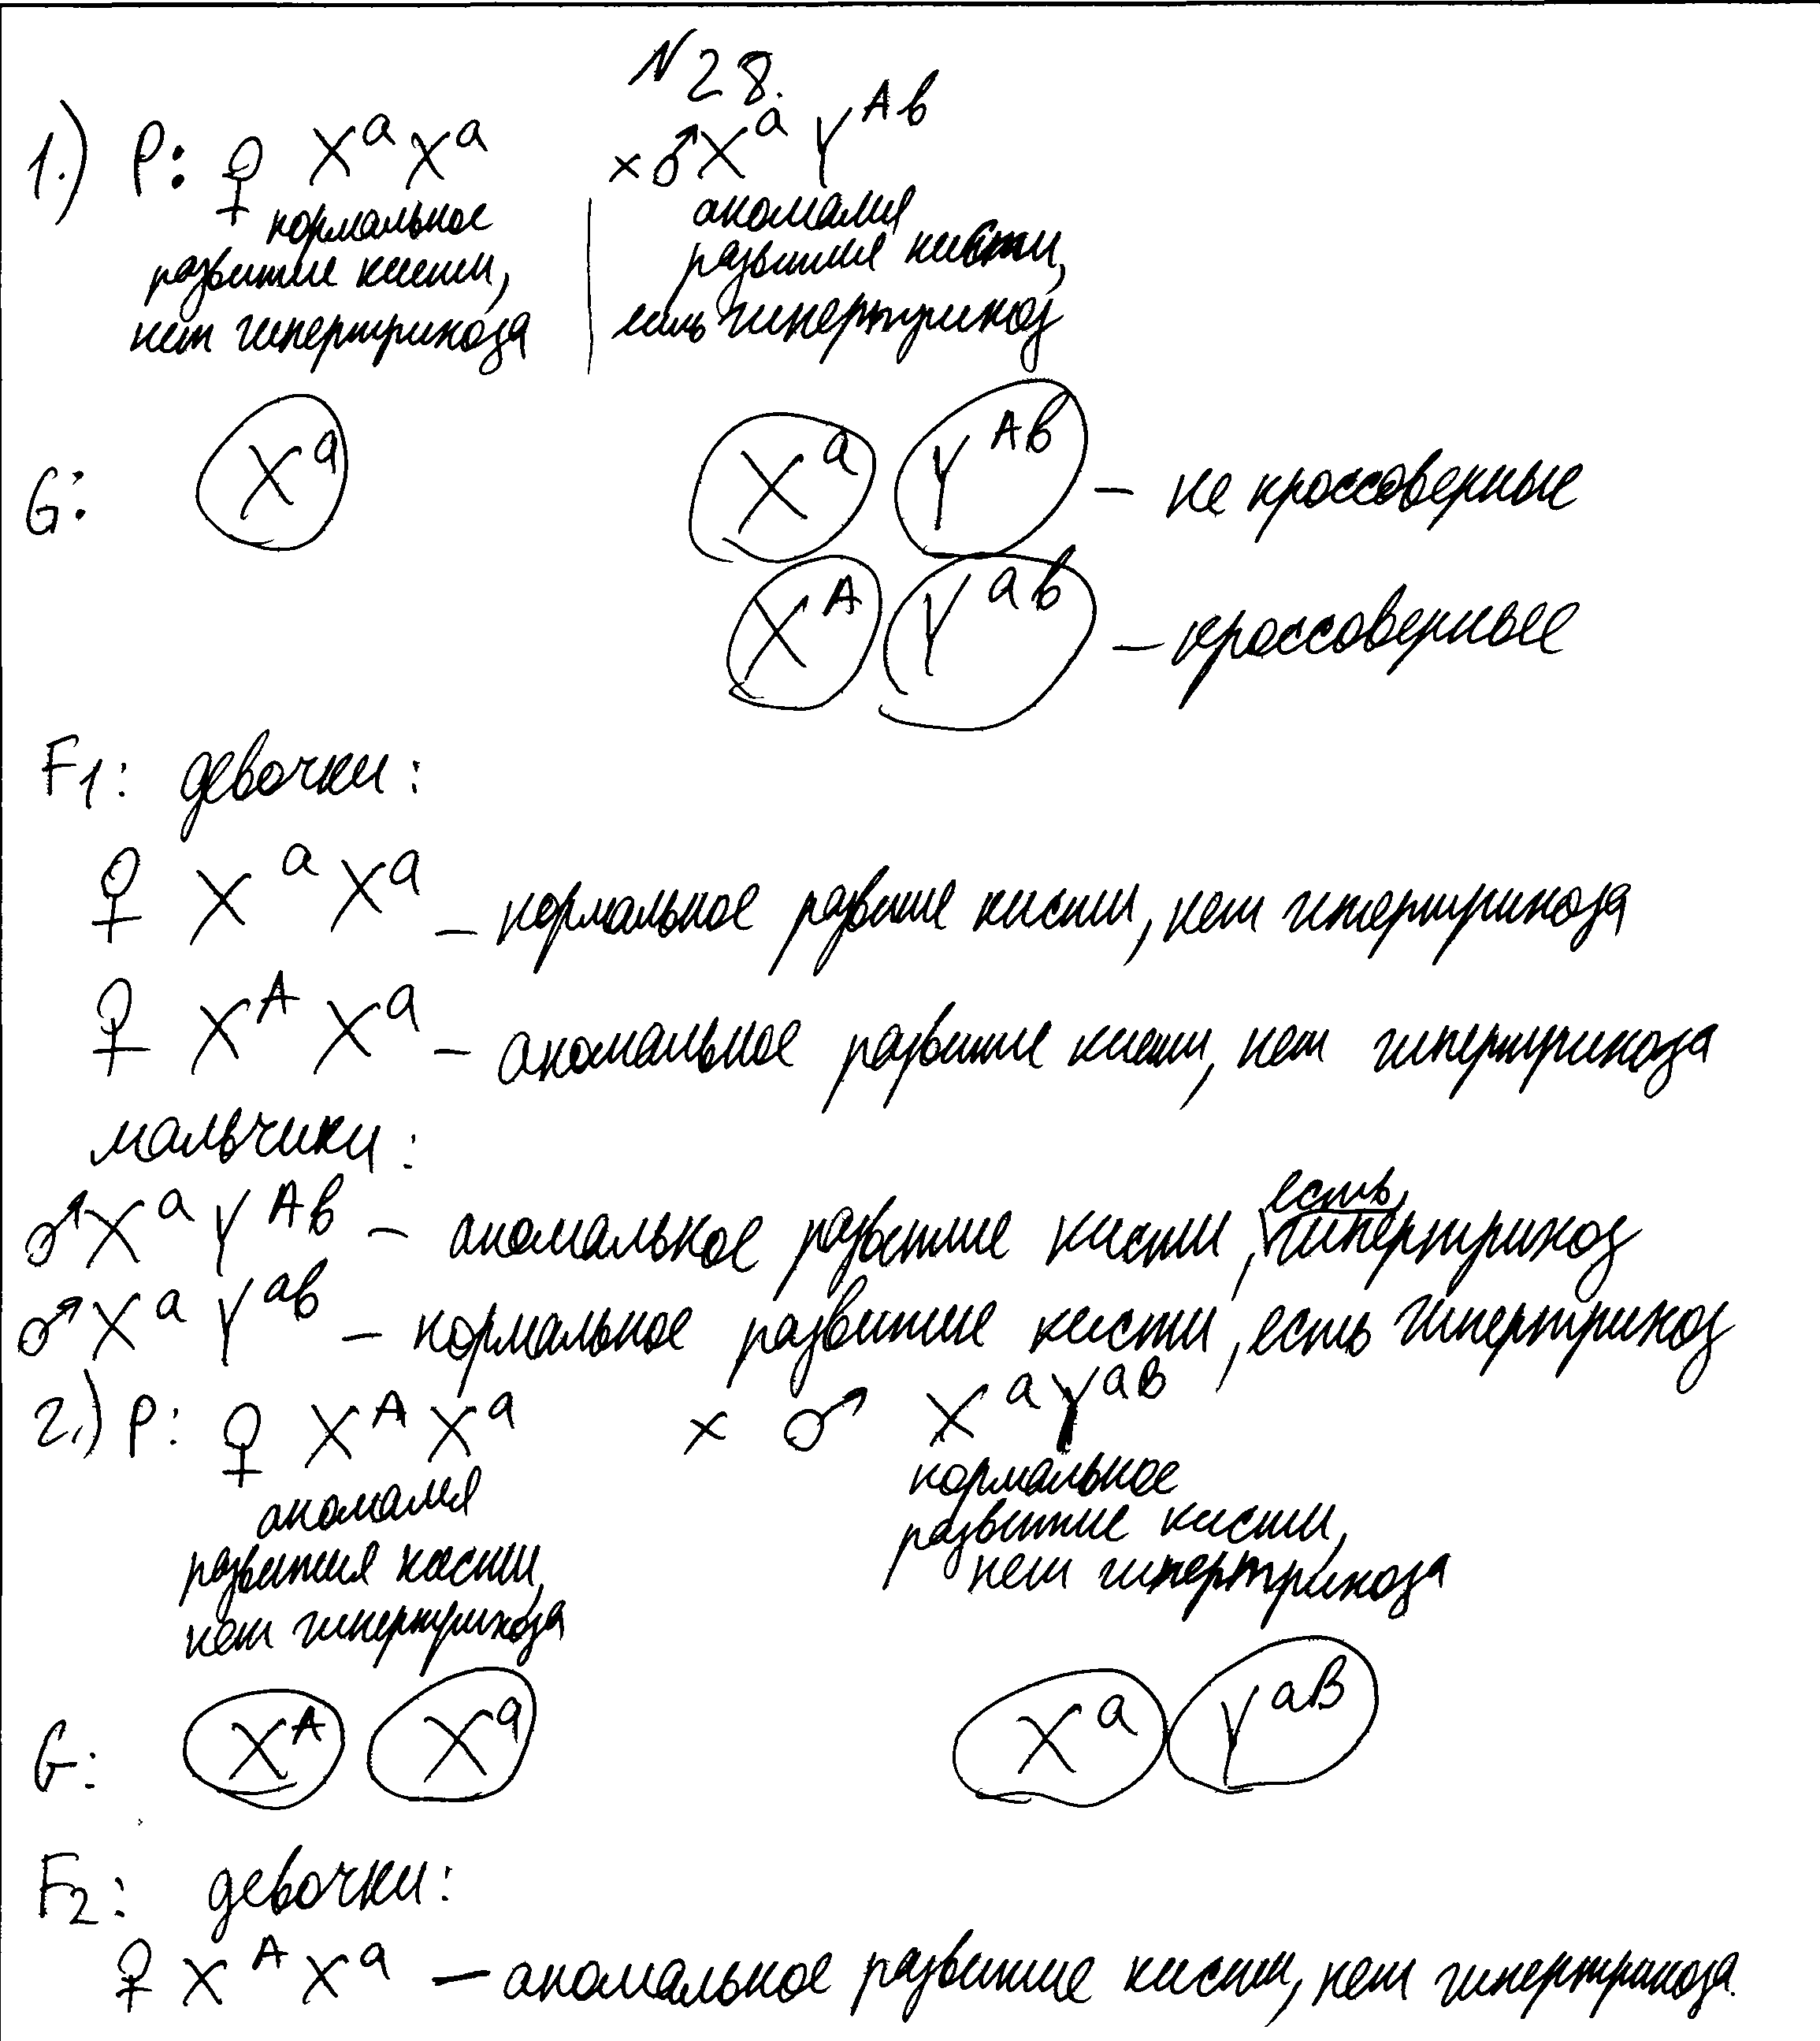 N 28.
1.) P: ♀ XᵃXᵃ × ♂ Xᵃ Yᴬᵇ
нормальное развитие кисти, нет гипертрихоза | аномалия развития кисти, есть гипертрихоз
G: Xᵃ Xᵃ Yᴬᵇ – не кроссоверные
Xᴬ Yᵃᵇ – кроссоверные
F1: девочки:
♀ Xᵃ Xᵃ – нормальное развитие кисти, нет гипертрихоза
♀ Xᴬ Xᵃ – аномальное развитие кисти, нет гипертрихоза
мальчики:
♂ Xᵃ Yᴬᵇ – аномальное развитие кисти, есть гипертрихоз
♂ Xᵃ Yᵃᵇ – нормальное развитие кисти, есть гипертрихоз
2.) P: ♀ Xᴬ Xᵃ × ♂ XᵃYᵃᴮ
аномалия
развития кисти,
нет гипертрихоза
нормальное
развитие кисти,
нет гипертрихоза
G: Xᴬ Xᵃ Xᵃ Yᵃᴮ
F2: девочки:
♀ Xᴬ Xᵃ – аномальное развитие кисти, нет гипертрихоза.